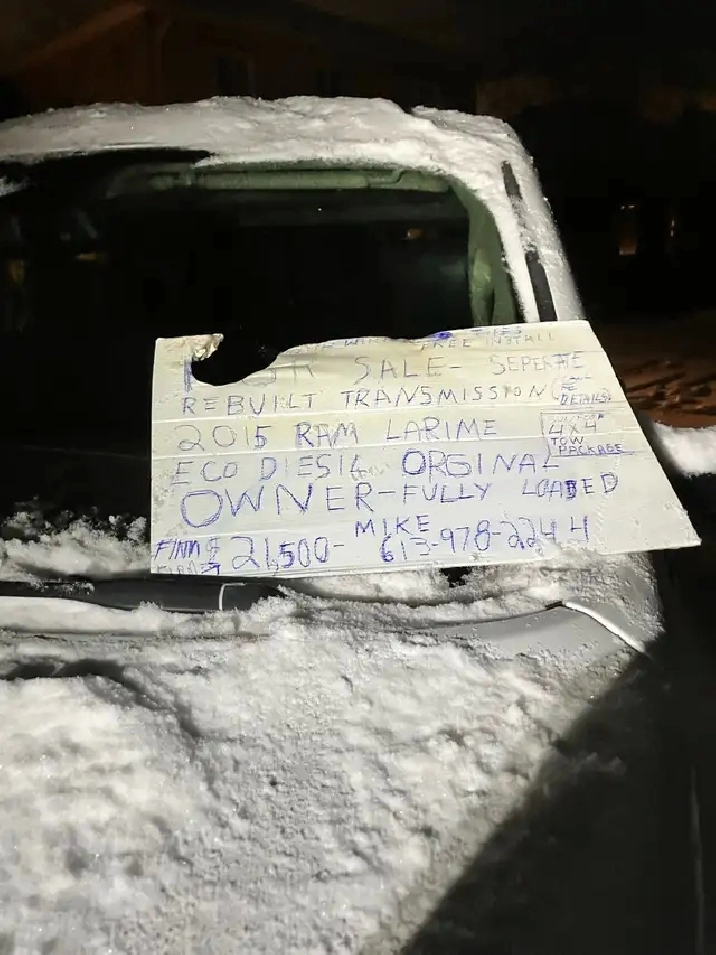 FREE INSTALL
SALE- SEPERATE
REBUILT TRANSMISSION (
DETAILS)
2015 RAM LARIME
4x4
TOW
PACKAGE
ECO DIESIL ORGINAL
OWNER-FULLY LOADED
MIKE
FIRM $ 21,500- 613-978-2244